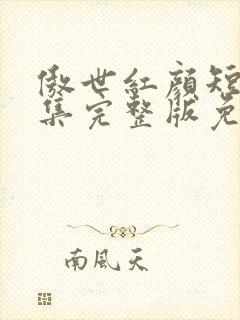 傲世紅顏短
集完整版免
南風天